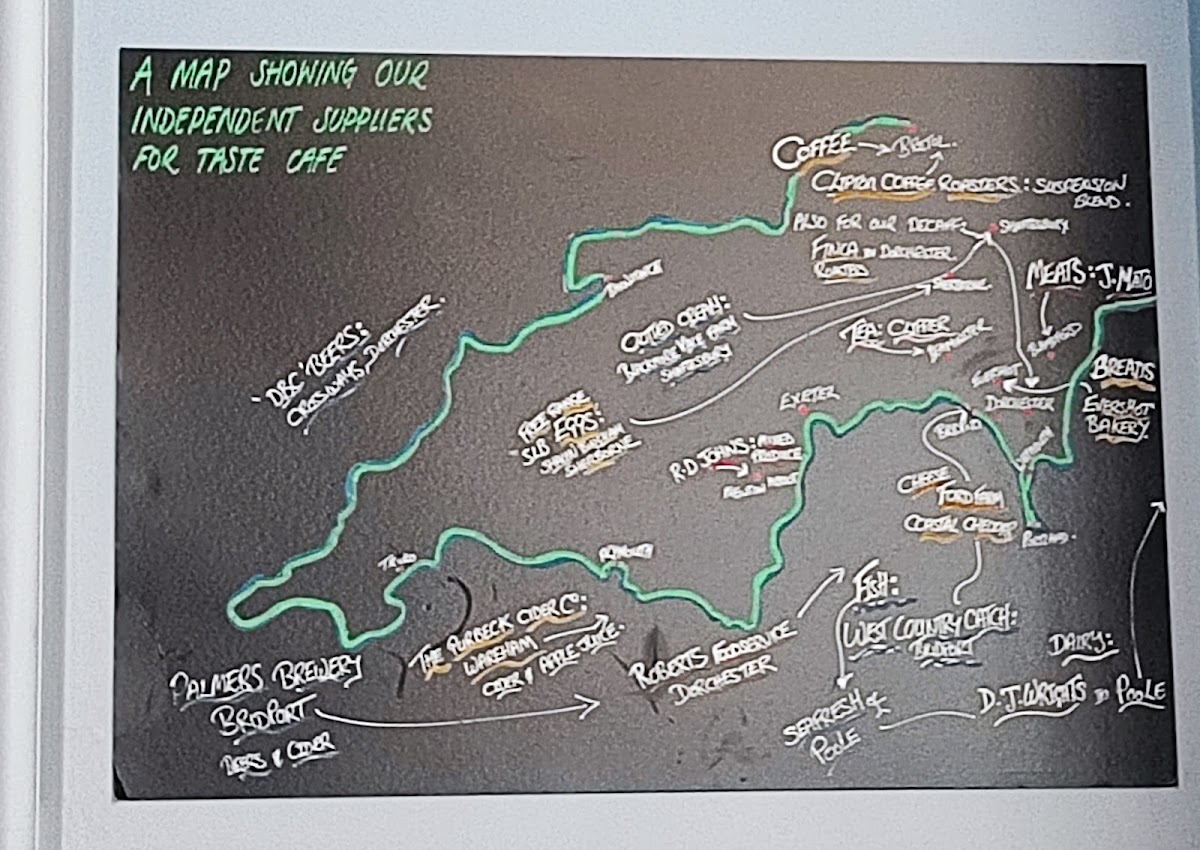 A MAP SHOWING OUR
INDEPENDENT SUPPLIERS
FOR TASTE CAFE
COFFEE
BRISTOL.
CLIFTON COFFEE ROASTERS: SUSPENSION
BLEND.
ALSO FOR OUR DECAFF:
FINCA IN DORCHESTER
ROASTED
SHAFTESBURY
MEATS: J. MATO
SHERBORNE
TEA: CLIPPER
BEAMINSTER
BLANDFORD
CLOTTED CREAM:
BLACKMORE VALE FARM
SHAFTESBURY
"DBC" BEERS:
CROSSWAYS, DORCHESTER.
EVERSHOT
DORCHESTER
BREADS
EVERSHOT
BAKERY
EXETER
FREE RANGE
EGGS:
SHERBORNE
R.D JOHNS: MIXED
PRODUCE
NEWTON ABBOT
BRIDPORT
WEYMOUTH
PORTLAND.
CHEESE
FORD FARM
COASTAL CHEDDAR
TRURO
PLYMOUTH
FISH:
WEST COUNTRY CATCH:
BRIDPORT
THE PURBECK CIDER CO:
WAREHAM
CIDER & APPLE JUICE.
ROBERTS FOODSERVICE
DORCHESTER
PALMERS BREWERY
BRIDPORT
BEERS & CIDER
SEAFRESH of
POOLE
DAIRY:
D.J.WRIGHTS IN POOLE